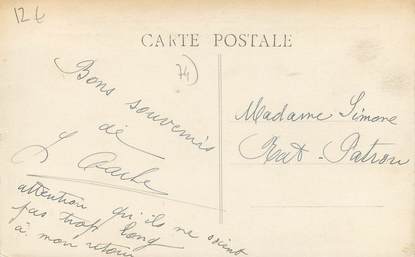 12 €
CARTE POSTALE
74
Bons souvenirs
de
L
attention qu'ils ne soient
pas trop long
à mon retour
Madame Simone
Rat-Patron